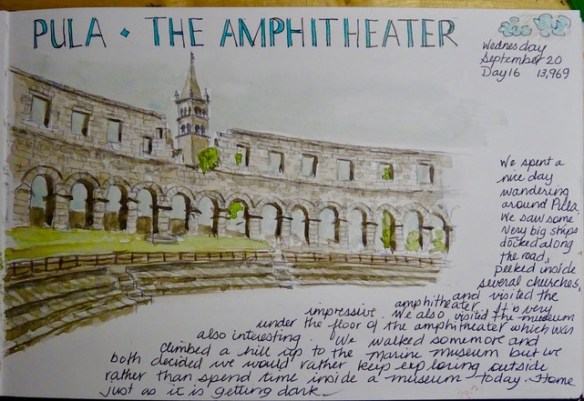 PULA · THE AMPHITHEATER
Wednesday
September 20
Day 16 13,969
We spent a
nice day
wandering
around Pula
We saw some
very big ships
docked along
the road,
peeked inside
several churches,
and visited the
amphitheater. It is very
impressive. We also visited the museum
under the floor of the amphitheater which was
also interesting. We walked somemore and
climbed a hill up to the marine museum but we
both decided we would rather keep exploring outside
rather than spend time inside a museum today. Home
just as it is getting dark.